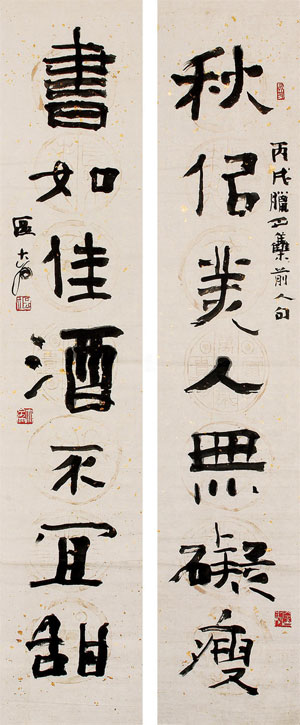 秋佀美人無礙瘦
丙戌臘集前人句
書如佳酒不宜甜
區大為